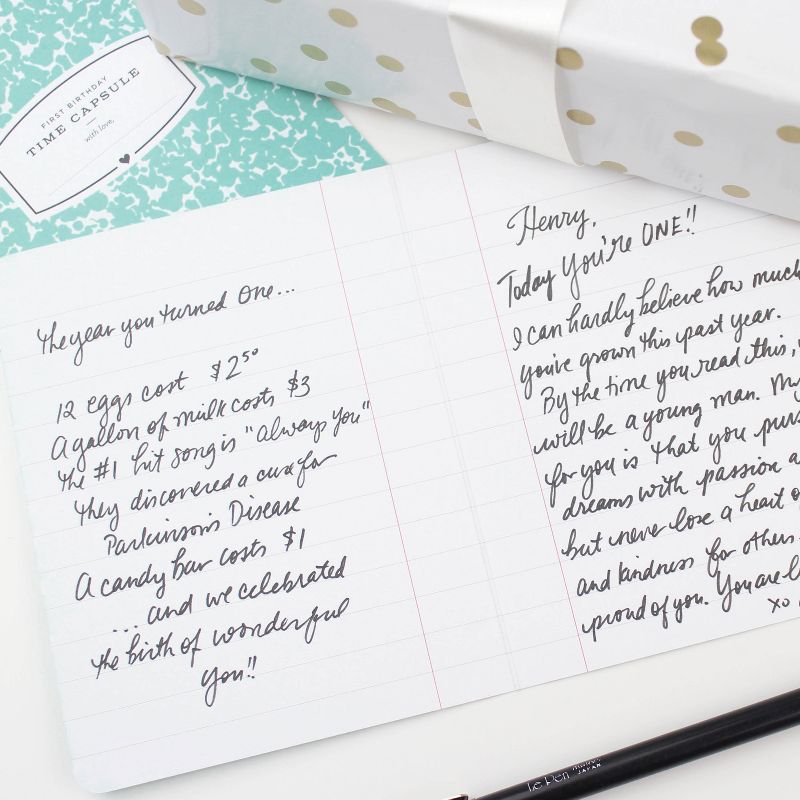 FIRST BIRTHDAY
TIME CAPSULE
with love,
the year you turned One...
12 eggs cost $2⁵⁰
A gallon of milk costs $3
the #1 hit song is "Always You"
they discovered a cure for
Parkinson's Disease
A candy bar costs $1
... and we celebrated
the birth of wonderful
you!!
Henry,
Today You're ONE!!
I can hardly believe how much
you've grown this past year.
By the time you read this,
will be a young man. My
for you is that you
dreams with passion
but never lose a heart
and kindness for others.
proud of you. You are
xo
Le Pen
JAPAN